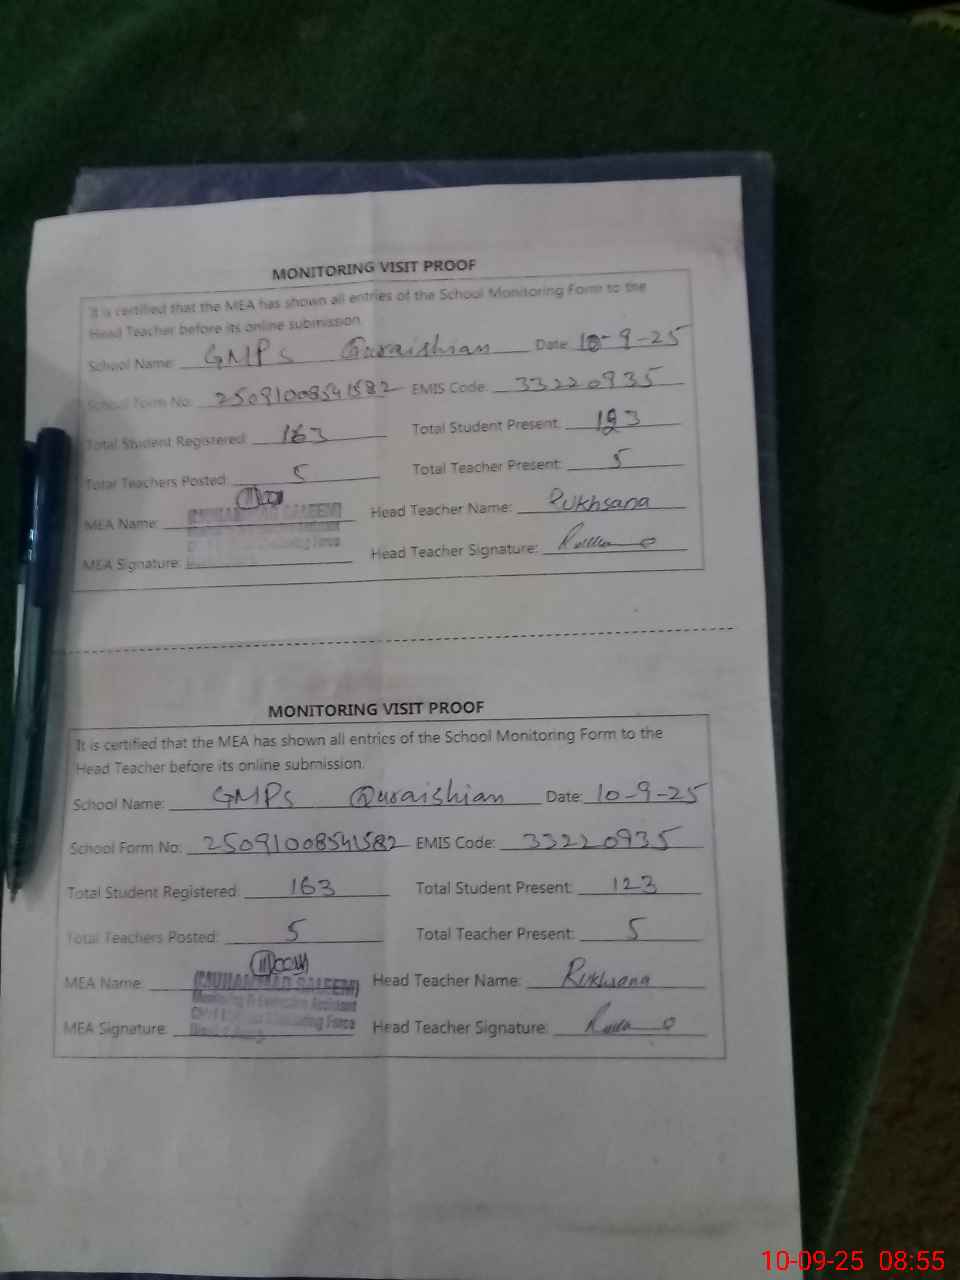 MONITORING VISIT PROOF
It is certified that the MEA has shown all entries of the School Monitoring Form to the
Head Teacher before its online submission.
School Name: GMPS Quraishian Date: 10-9-25
School Form No: 25091008541582 EMIS Code: 33220935
Total Student Registered: 163 Total Student Present: 123
Total Teachers Posted: 5 Total Teacher Present: 5
MEA Name: (MUHAMMAD SALEEM) Head Teacher Name: Rukhsana
MEA Signature: Monitoring Force Head Teacher Signature:
MONITORING VISIT PROOF
It is certified that the MEA has shown all entries of the School Monitoring Form to the
Head Teacher before its online submission.
School Name: GMPS Quraishian Date: 10-9-25
School Form No: 25091008541582 EMIS Code: 33220935
Total Student Registered: 163 Total Student Present: 123
Total Teachers Posted: 5 Total Teacher Present: 5
MEA Name: (MUHAMMAD SALEEM) Head Teacher Name: Rukhsana
Monitoring & Evaluation Assistant
MEA Signature: Monitoring Force Head Teacher Signature:
10-09-25 08:55